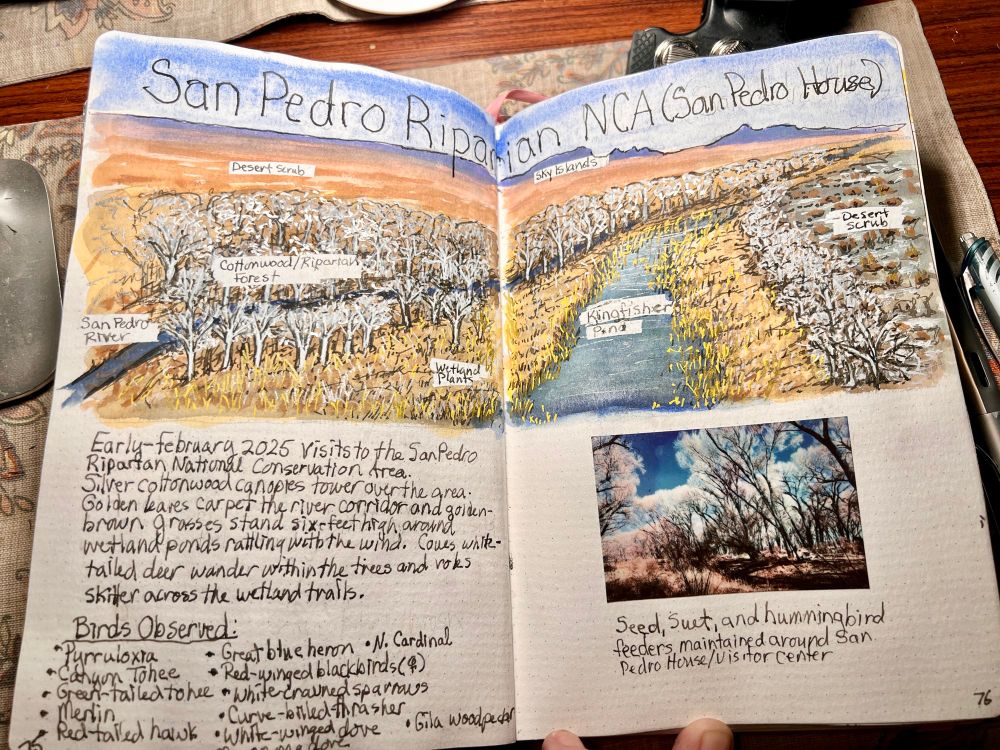 San Pedro Riparian NCA (San Pedro House)
Desert Scrub
Sky Islands
Desert
Scrub
Cottonwood/Riparian
forest
San Pedro
River
Kingfisher
Pond
Wetland
Plants
Early-february 2025 visits to the San Pedro
Riparian National Conservation Area.
Silver cottonwood canopies tower over the area.
Golden leaves carpet the river corridor and golden-
brown grasses stand six-feet high around
wetland ponds rattling with the wind. Coues white-
tailed deer wander within the trees and voles
skitter across the wetland trails.
Birds Observed:
• Pyrruloxia
• Canyon Tohee
• Green-tailed tohee
• Merlin
• Red-tailed hawk
• Great blue heron
• Red-winged blackbirds (♀)
• White-crowned sparrows
• Curve-billed thrasher
• White-winged dove
dove
• N. Cardinal
• Gila woodpecker
Seed, Suet, and hummingbird
feeders maintained around San
Pedro House/Visitor Center
76